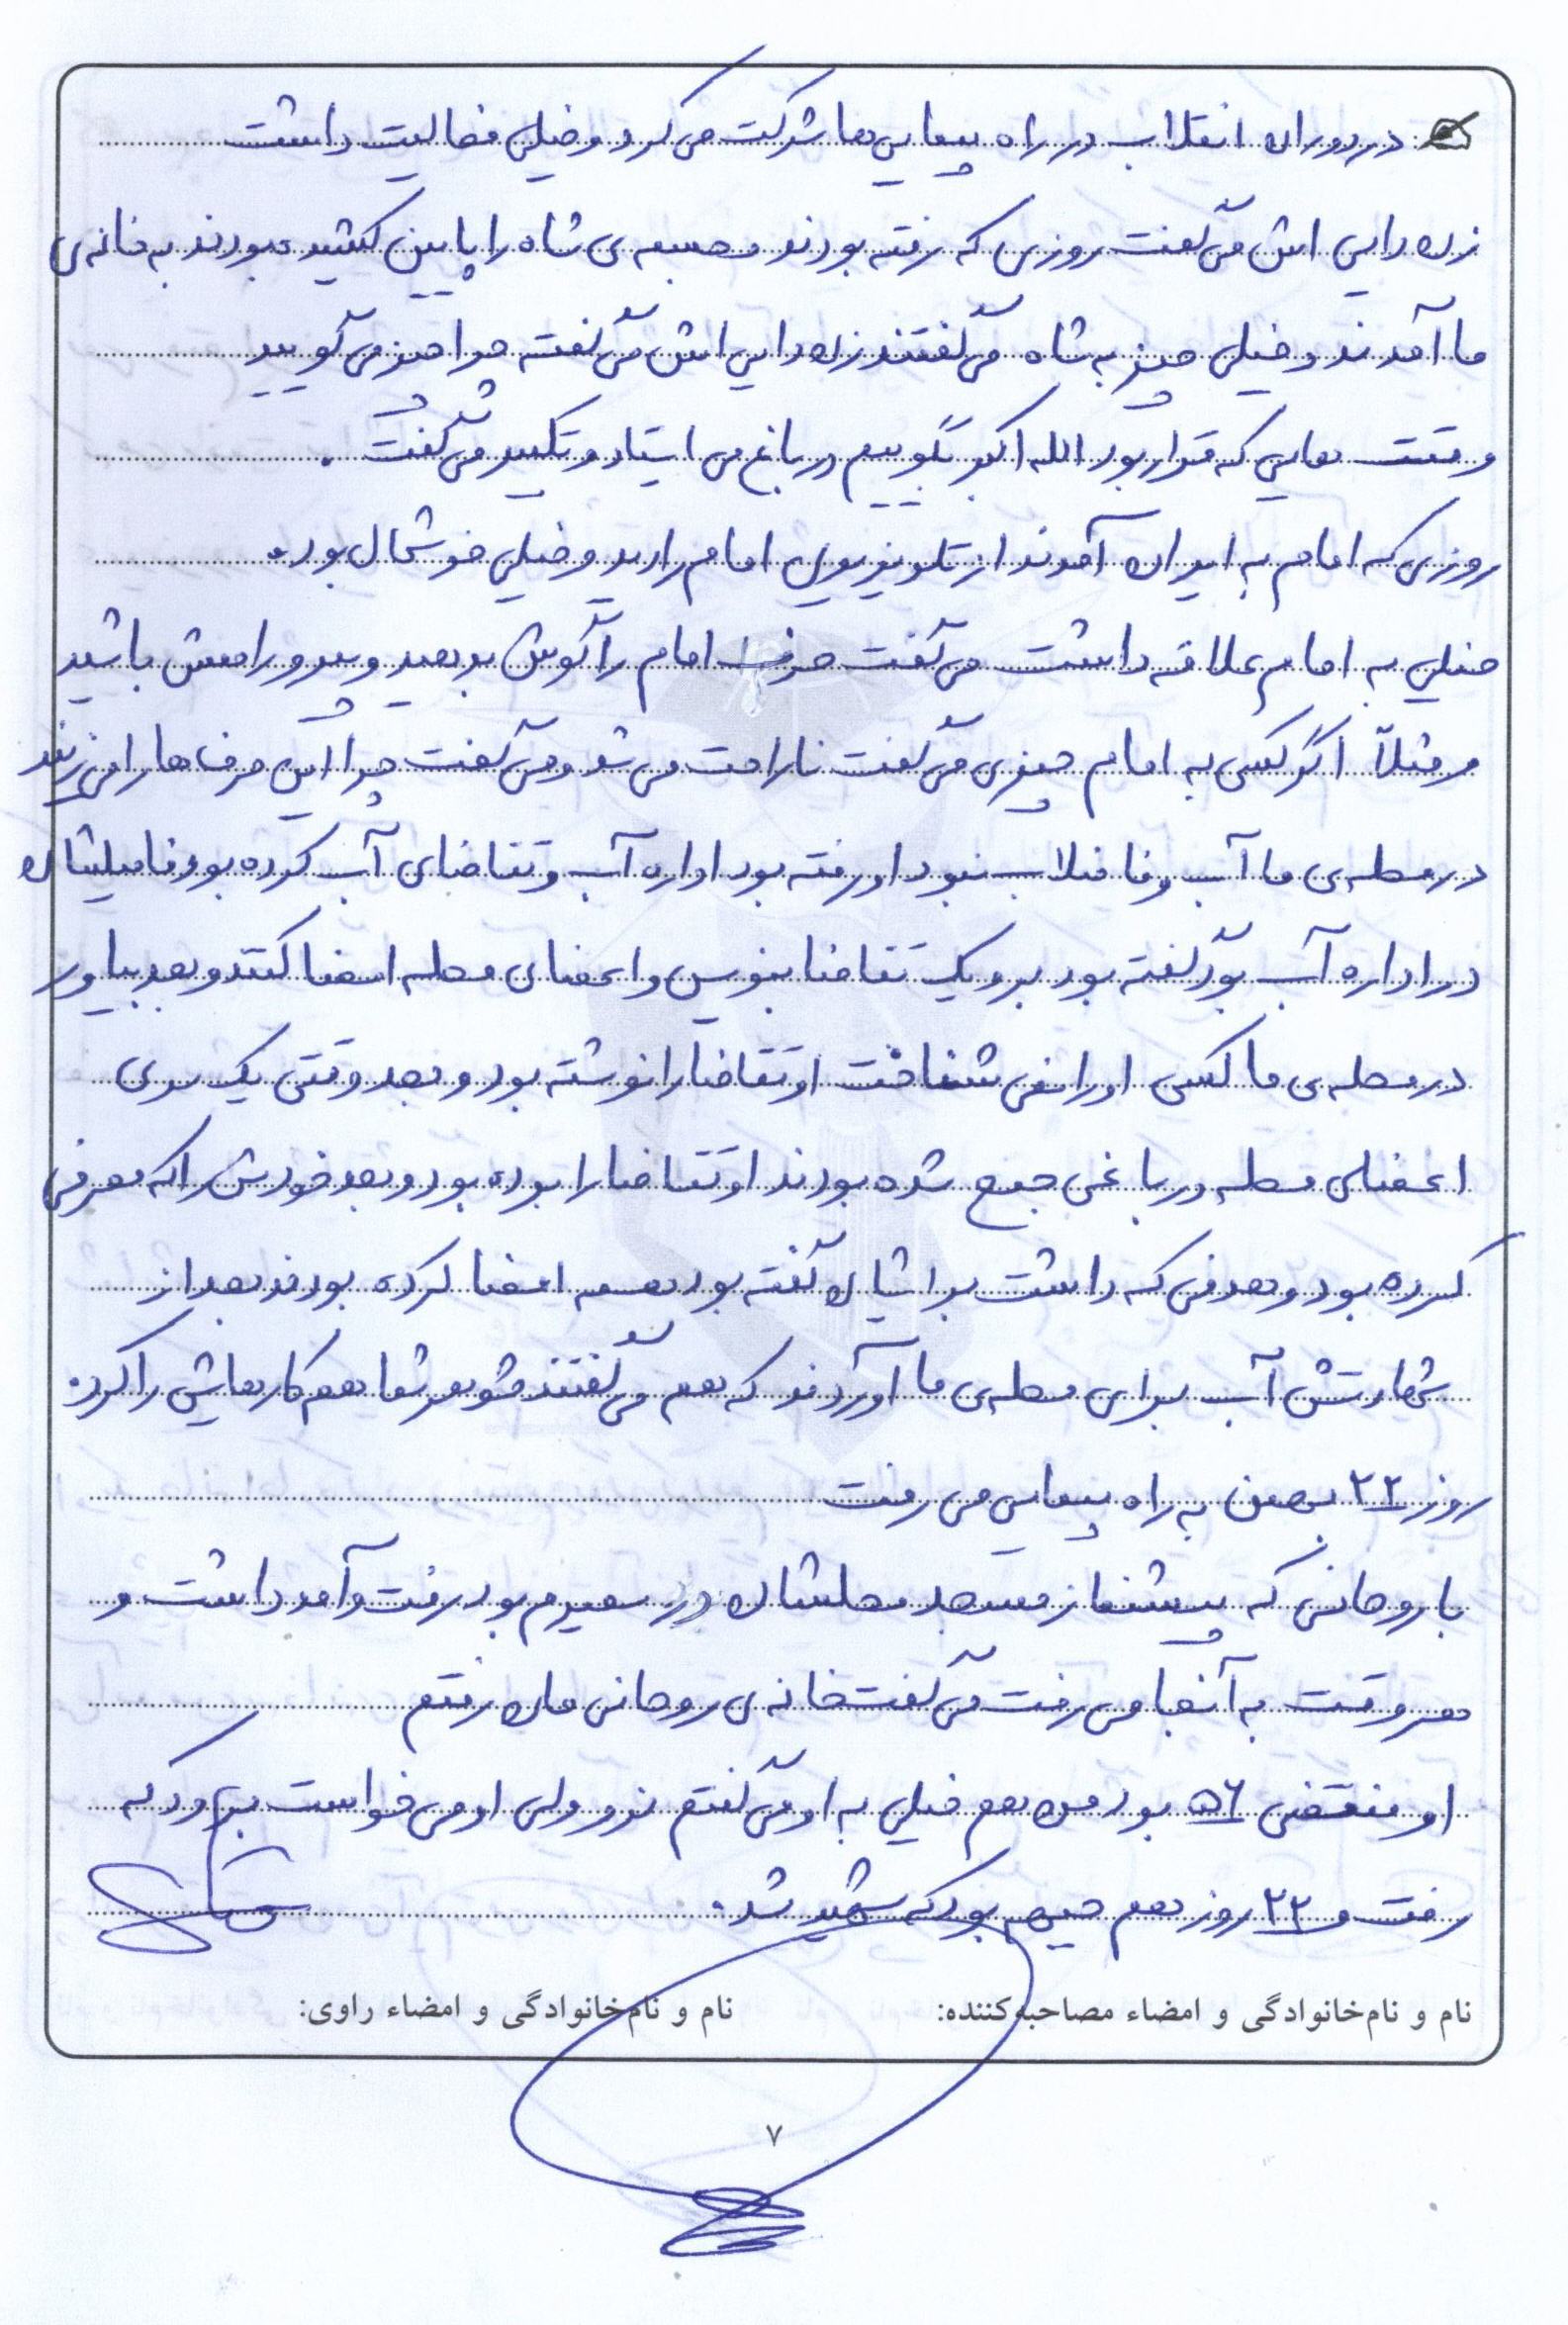 در دوران انقلاب در راه پیمایی ها شرکت می کرد و خیلی فعالیت داشت
زن دایی اش می گفت روزی که رفته بودند مجسمه ی شاه را پایین کشیده بودند به خانه ی
ما آمدند و خیلی چیز به شاه می گفتند زن دایی اش می گفته چرا چیز می گویید
وقت هایی که قرار بود الله اکبر بگوییم در باغ می ایستاد و تکبیر می گفت .
روزی که امام به ایران آمدند از تلویزیون امام را دید و خیلی خوشحال بود.
خیلی به امام علاقه داشت می گفت حرف امام را گوش بدهید و پیرو راهش باشید
مثلاً اگر کسی به امام چیزی می گفت ناراحت می شد و می گفت چرا این حرف ها را می زنید
در محله ی ما آب و فاضلاب نبود او رفته بود اداره آب و تقاضای آب کرده بود فامیلشان
در اداره آب بود گفته بود برو یک تقاضا بنویس و اعضای محله امضا کنند و بعد بیاور
در محله ی ما کسی او را نمی شناخت او تقاضا را نوشته بود و بعد وقتی یک سری
اعضای محله در باغی جمع شده بودند او تقاضا را برده بود و بعد خودش را که معرفی
کرده بود و هدفی که داشت براشان گفته بود همه امضا کرده بودند بعد از
شهادتش آب برای محله ی ما آوردند که هم می گفتند شوهر شما هم کارهایش را کرد.
روز ۲۲ بهمن به راه پیمایی می رفت
با روحانی که پیشنماز مسجد محلشان در بود رفت و آمد داشت و
هر وقت به آنجا می رفت می گفت خانه ی روحانی مان رفتم
او منقضی ۵۶ بود من هم خیلی به او می گفتم نرو ولی او می خواست برود که
رفت و ۲۲ روز هم جبهه بود که شهید شد.
نام و نام‌خانوادگی و امضاء مصاحبه‌کننده: نام و نام‌خانوادگی و امضاء راوی:
۷